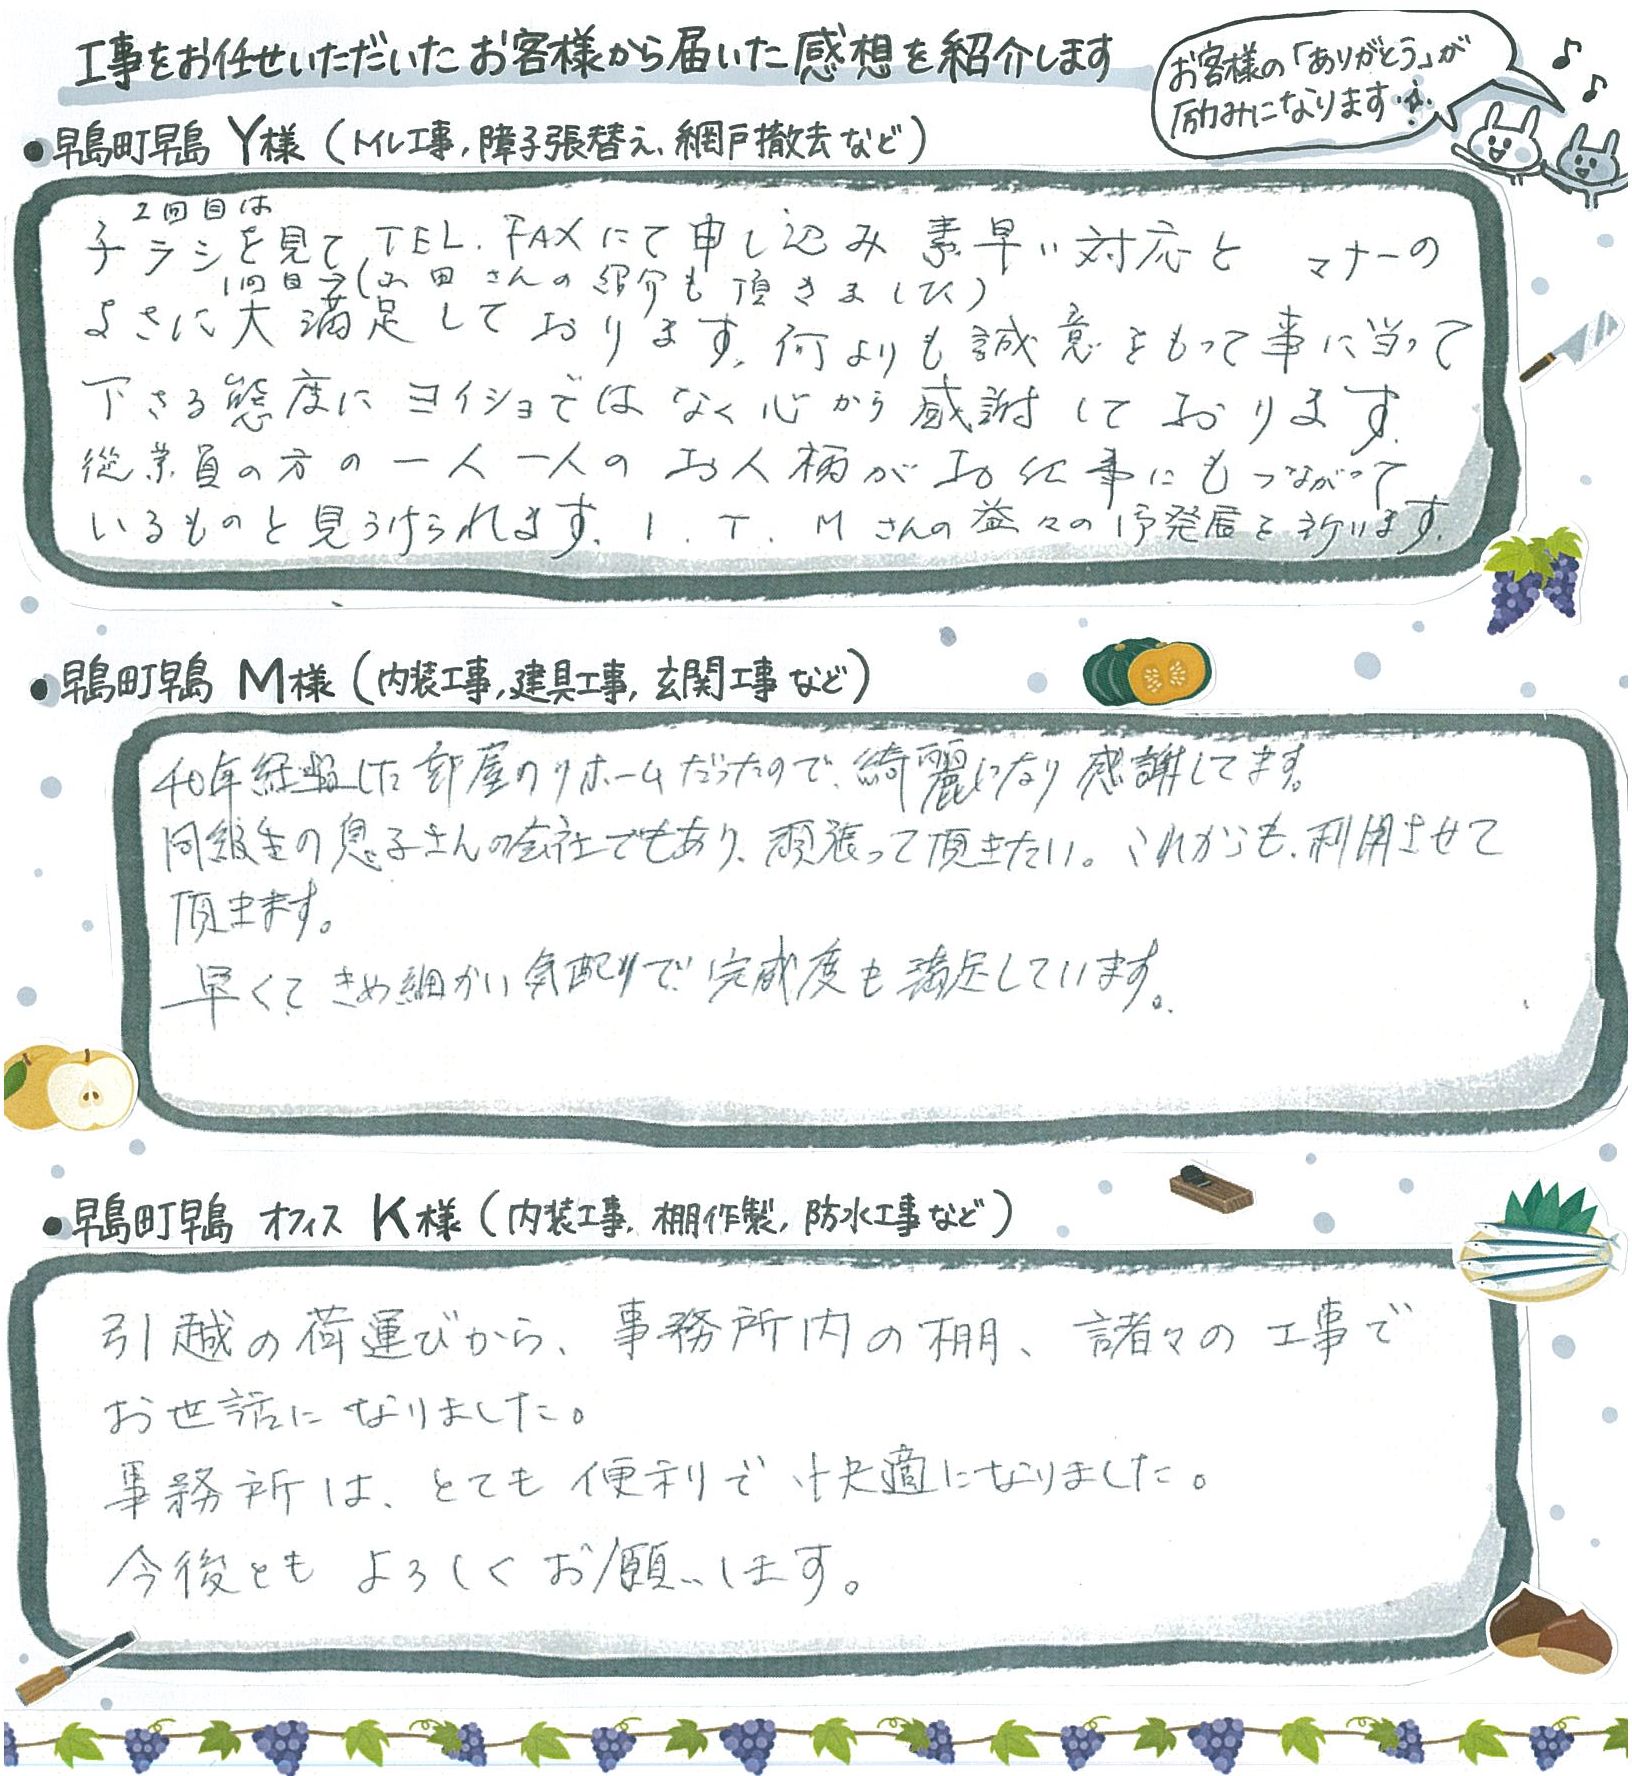 工事をお任せいただいたお客様から届いた感想を紹介します
お客様の「ありがとう」が
励みになります
・早島町早島 Y様（トイレ工事,障子張替え、網戸撤去など）
2回目は
チラシを見て TEL.FAXにて申し込み 素早い対応と マナーの
1回目は(山田さんの紹介も頂きました)
よさに大満足しております。何よりも誠意をもって事に当って
下さる態度に ヨイショではなく心から感謝しております。
従業員の方の一人一人のお人柄がお仕事にもつながって
いるものと見うけられます。I.T.Mさんの益々の御発展を祈ります。
・早島町早島 M様（内装工事,建具工事,玄関工事など）
40年経過した部屋のリホームだったので、綺麗になり感謝してます。
同級生の息子さんの会社でもあり、頑張って頂きたい。これからも、利用させて
頂きます。
早くて、きめ細かい気配りで、完成度も満足しています。
・早島町早島 オフィス K様（内装工事,棚作製,防水工事など）
引越の荷運びから、事務所内の棚、諸々の工事で
お世話になりました。
事務所は、とても便利で快適になりました。
今後ともよろしくお願いします。